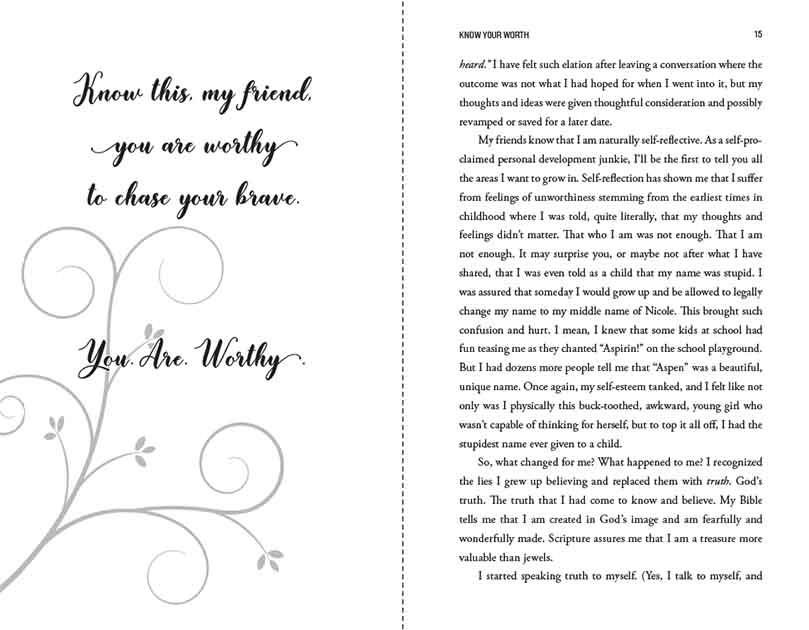 Know this, my friend,
you are worthy
to chase your brave.
You. Are. Worthy.
KNOW YOUR WORTH 15
heard." I have felt such elation after leaving a conversation where the
outcome was not what I had hoped for when I went into it, but my
thoughts and ideas were given thoughtful consideration and possibly
revamped or saved for a later date.
My friends know that I am naturally self-reflective. As a self-pro-
claimed personal development junkie, I'll be the first to tell you all
the areas I want to grow in. Self-reflection has shown me that I suffer
from feelings of unworthiness stemming from the earliest times in
childhood where I was told, quite literally, that my thoughts and
feelings didn't matter. That who I am was not enough. That I am
not enough. It may surprise you, or maybe not after what I have
shared, that I was even told as a child that my name was stupid. I
was assured that someday I would grow up and be allowed to legally
change my name to my middle name of Nicole. This brought such
confusion and hurt. I mean, I knew that some kids at school had
fun teasing me as they chanted "Aspirin!" on the school playground.
But I had dozens more people tell me that "Aspen" was a beautiful,
unique name. Once again, my self-esteem tanked, and I felt like not
only was I physically this buck-toothed, awkward, young girl who
wasn't capable of thinking for herself, but to top it all off, I had the
stupidest name ever given to a child.
So, what changed for me? What happened to me? I recognized
the lies I grew up believing and replaced them with truth. God's
truth. The truth that I had come to know and believe. My Bible
tells me that I am created in God's image and am fearfully and
wonderfully made. Scripture assures me that I am a treasure more
valuable than jewels.
I started speaking truth to myself. (Yes, I talk to myself, and